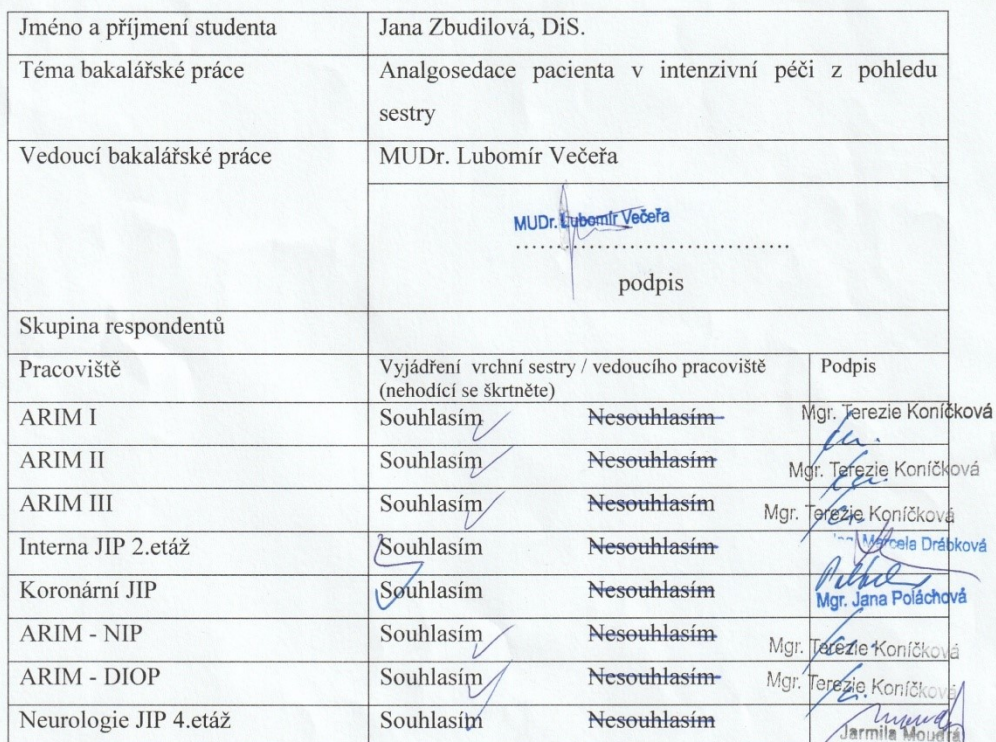 Jméno a příjmení studenta Jana Zbudilová, DiS.
Téma bakalářské práce Analgosedace pacienta v intenzivní péči z pohledu
sestry
Vedoucí bakalářské práce MUDr. Lubomír Večeřa
MUDr. Lubomír Večeřa
podpis
Skupina respondentů
Pracoviště Vyjádření vrchní sestry / vedoucího pracoviště Podpis
(nehodící se škrtněte)
ARIM I Souhlasím Nesouhlasím Mgr. Terezie Koníčková
ARIM II Souhlasím Nesouhlasím Mgr. Terezie Koníčková
ARIM III Souhlasím Nesouhlasím Mgr. Terezie Koníčková
Interna JIP 2.etáž Souhlasím Nesouhlasím Marcela Drábková
Koronární JIP Souhlasím Nesouhlasím Mgr. Jana Poláchová
ARIM - NIP Souhlasím Nesouhlasím Mgr. Terezie Koníčková
ARIM - DIOP Souhlasím Nesouhlasím Mgr. Terezie Koníčková
Neurologie JIP 4.etáž Souhlasím Nesouhlasím Jarmila Moudrá